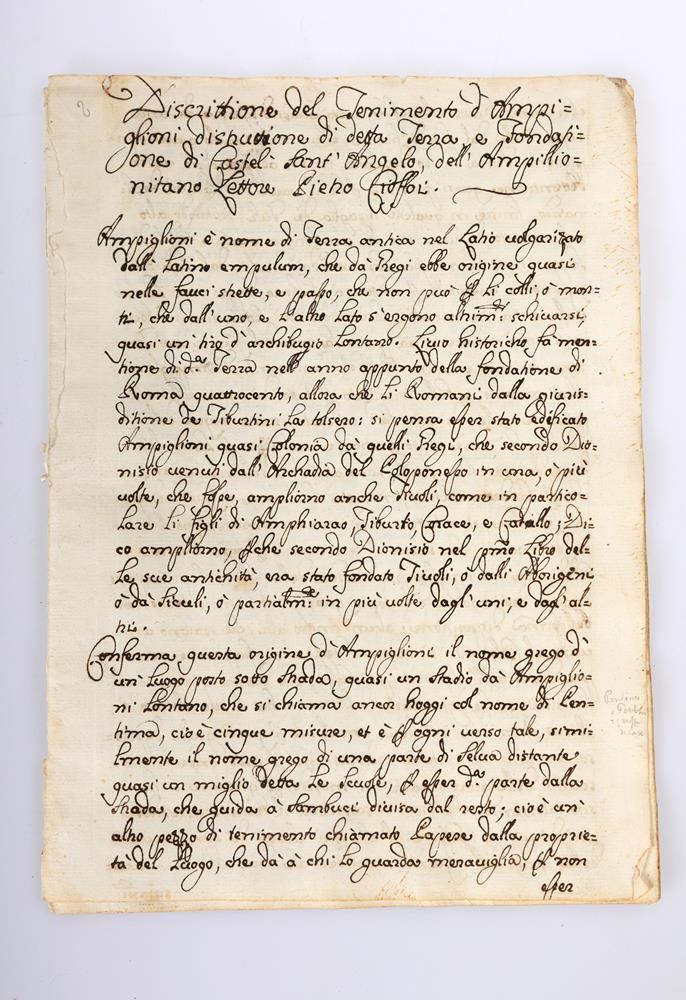 Discrittione del Tenimento d'Ampi=
glioni distrutione di detta Terra e Fondati=
one di Castel Sant' Angelo, dell' Ampillio=
nitano Lettore Pietro Cioffoi.
Ampiglioni è nome di Terra antica nel Latio volgarizato
dall' Latino empulum, che dà Regi ebbe origine quasi
nelle fauci strette, e passo, che non può p li colli, ò mon=
ti, che dall' uno, e l'altro lato s'ergono altrim:te schivarsi,
quasi un tiro d'archibugio lontano. Livio historicho fa men=
tione di d.a Terra nell' anno appunto della fondatione di
Roma quattrocento, allora che li Romani dalla giuris=
ditione de Tiburtini la tolsero: si pensa esser stato edificato
Ampiglioni quasi Colonia dà quelli Regi, che secondo Dio=
nisio venuti dall' Archadia del Coloponesso in una, ò più
volte, che fosse, ampliorno anche Tivoli, come in partico=
lare li figli di Amphiarao, Tiburto, Corace, e Catillo; Di=
co ampliorno, p che secondo Dionisio nel pmo Libro del=
le sue antichità, era stato fondato Tivoli, ò dalli Aborigeni
ò dà Siculi, ò partialm:te in più volte dagl' uni, e dagl' al=
tri.
Conferma questa origine d'Ampiglioni il nome grego d'
un luogo posto sotto strada, quasi un stadio dà Ampiglio=
ni lontano, che si chiama ancor hoggi col nome di Pen=
tima, cioè cinque misure, et è p ogni verso tale, simi=
lmente il nome grego di una parte di Selva distante
quasi un miglio detta le Scuse, p esser d.a parte dalla
strada, che guida à Sambuci divisa dal resto; cioè un'
altro pezzo di tenimento chiamato Papese dalla proprie=
tà del luogo, che dà à chi lo guarda meraviglia, p non
esser